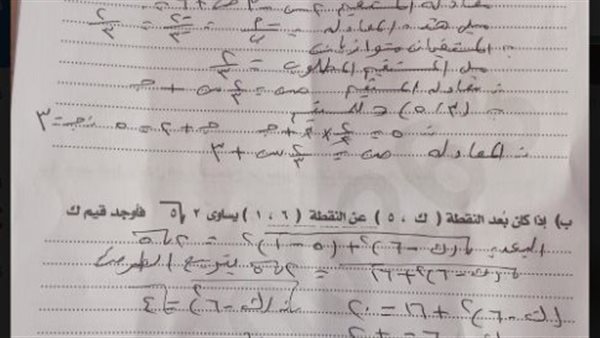 معادلة المستقيم ٢س - ٣ص + ٦ = ٠
ميل هذه المعادلة = -٢/-٣ = ٢/٣
∵ المستقيمان متوازيان
ميل المستقيم المطلوب = ٢/٣
∴ معادلة المستقيم ص = ٢/٣ س + جـ
∵ (٣ ، ٥) ∈ للمستقيم
∴ ٥ = ٢/٣ × ٣ + جـ جـ + ٢ = ٥ ∴ جـ = ٣
∴ المعادلة ص = ٢/٣ س + ٣
ب) إذا كان بُعد النقطة ( ك ، ٥ ) عن النقطة ( ٦ ، ١ ) يساوى ٢ √٥ فأوجد قيم ك
البعد = √(ك - ٦)٢ + (٥ - ١)٢ = ٢√٥
√(ك - ٦)٢ + ١٦ = ٢√٥ بتربيع الطرفين
(ك - ٦)٢ + ١٦ = ٢٠ ∴ (ك - ٦)٢ = ٤
ك - ٦ = ± ٢